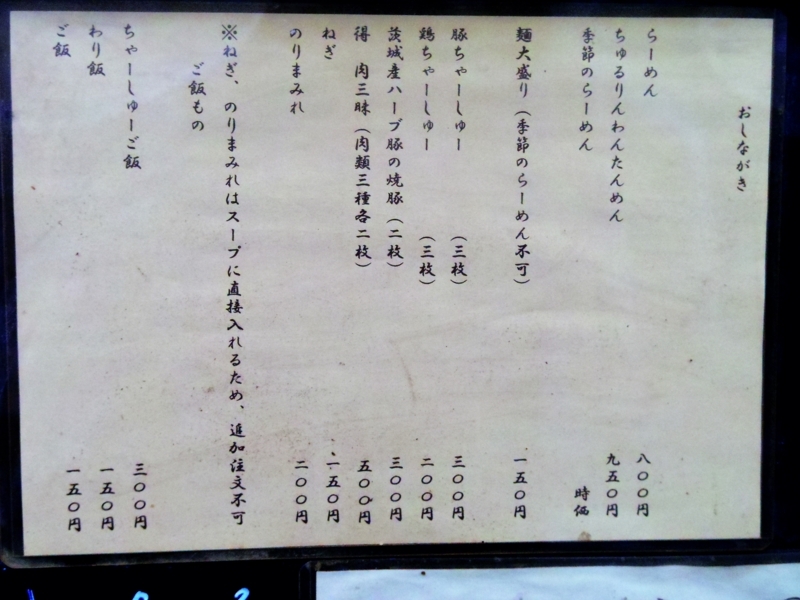 おしながき
らーめん 八〇〇円
ちゅるりんわんたんめん 九五〇円
季節のらーめん 時価
麺大盛り（季節のらーめん不可） 一五〇円
豚ちゃーしゅー （三枚） 三〇〇円
鶏ちゃーしゅー （三枚） 二〇〇円
茨城産ハーブ豚の焼豚（二枚） 三〇〇円
得 肉三昧（肉類三種各二枚） 五〇〇円
ねぎ 一五〇円
のりまみれ 二〇〇円
※ねぎ、のりまみれはスープに直接入れるため、追加注文不可
ご飯もの
ちゃーしゅーご飯 三〇〇円
わり飯 一五〇円
ご飯 一五〇円